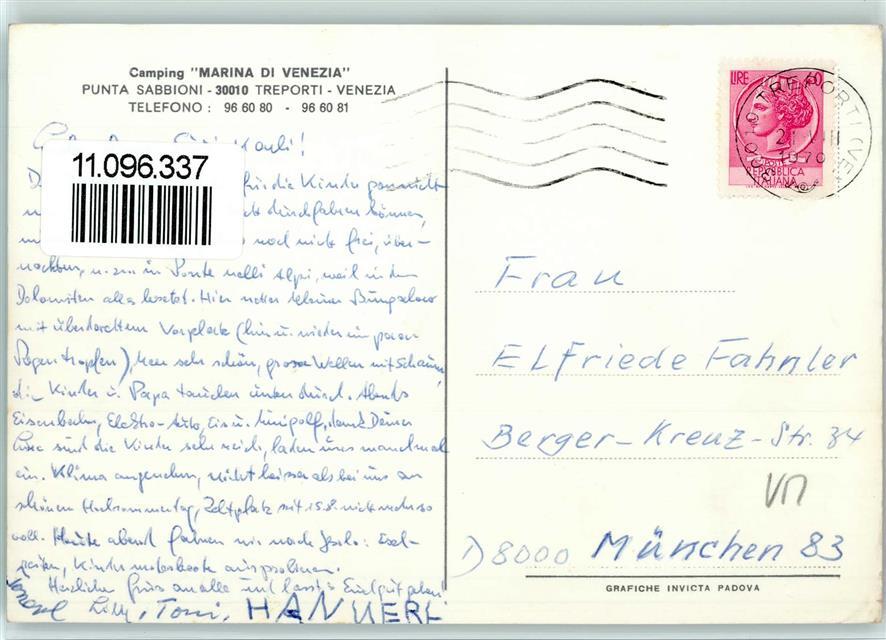 Camping "MARINA DI VENEZIA"
PUNTA SABBIONI - 30010 TREPORTI - VENEZIA
TELEFONO : 96 60 80 - 96 60 81
11.096.337
für die Kinder
durchfahren können,
noch nicht frei, über-
nachten, in Ponte nelle Alpi, weil in den
Dolomiten alles besetzt. Hier netter kleiner Bungalow
mit überdachtem Vorplatz (hin u. wieder ein paar
Regentropfen), Meer sehr schön, grosse Wellen mit Schaum,
die Kinder u. Papa tauchen unten durch. Abends
Eisenbahn, Elektro-Auto, Eis u. Minigolf, dank Deiner
sind die Kinder sehr reich, laden uns manchmal
ein. Klima angenehm, nicht heisser als bei uns an
schönen Hochsommertag, Zeltplatz seit 15.8. nicht mehr so
voll. Heute abend fahren wir nach Jesolo: Esel-
reiten, Kinder
Herzliche Grüsse an alle und
Lilly, Toni, HANNERL
LIRE 60
REPUBBLICA
ITALIANA
TREPORTI (VE)
1970
Frau
Elfriede Fahnler
Berger-Kreuz-Str. 34
D 8000 München 83
GRAFICHE INVICTA PADOVA